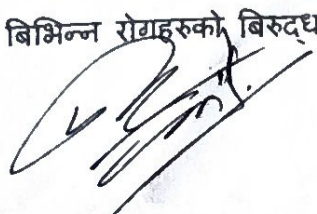 बिभिन्न रोगहरुको बिरुद्ध